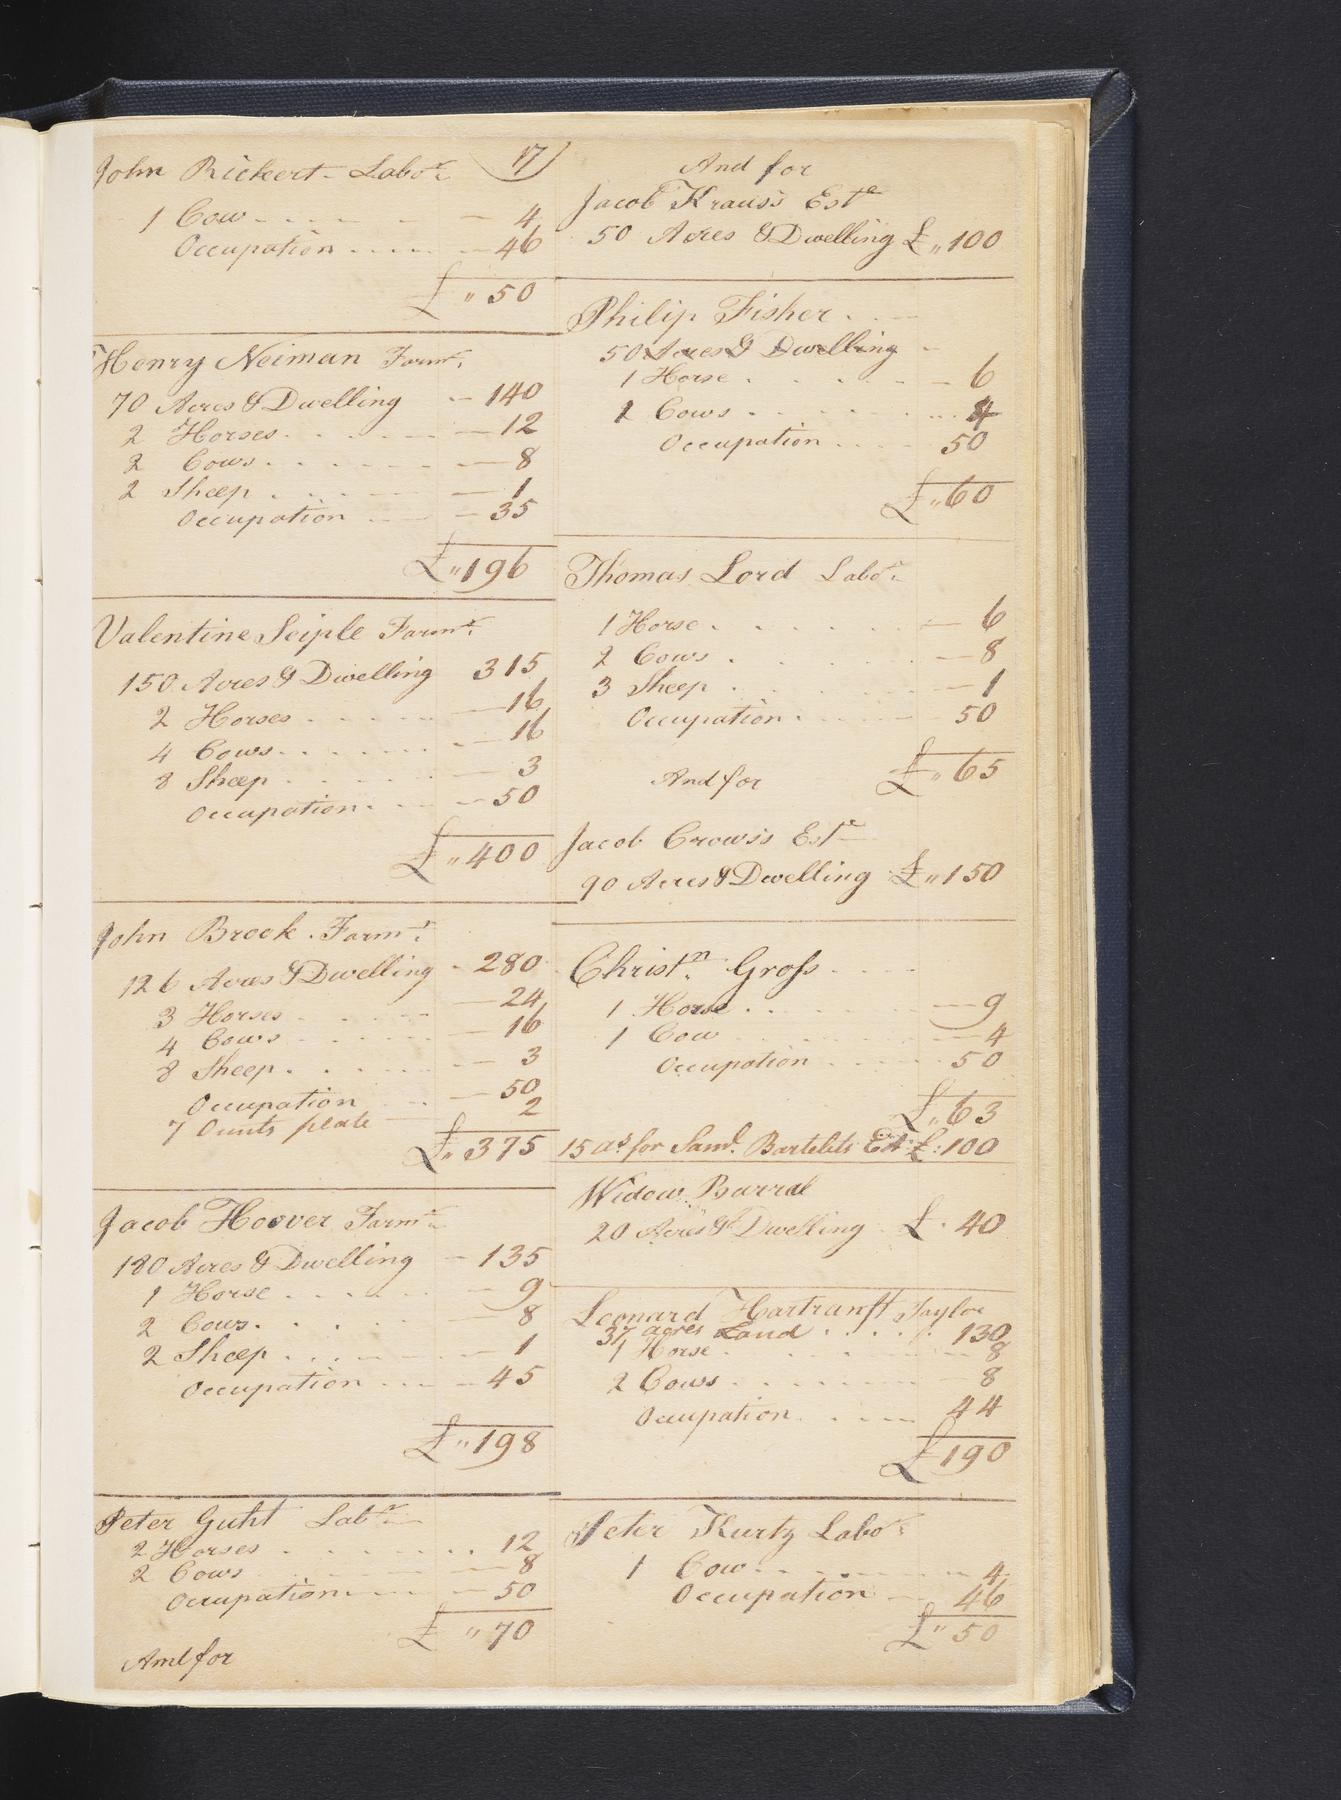 17
John Rickert - Labo.r
1 Cow - - - - 4
Occupation - - - - 46
£ " 50
Henry Neiman Farm.r
70 Acres & Dwelling - 140
2 Horses - - - - 12
2 Cows - - - - 8
2 Sheep - - - - 1
Occupation - - - 35
£ " 196
Valentine Seiple Farm.r
150 Acres & Dwelling 315
2 Horses - - - - 16
4 Cows - - - - 16
8 Sheep - - - - 3
Occupation - - - 50
£ " 400
John Brook . Farm.r
126 Acres & Dwelling - 280
3 Horses - - - - 24
4 Cows - - - - 16
8 Sheep - - - - 3
Occupation - - - 50
7 Ounts plate - 2
£ " 375
Jacob Hoover Farm.r
180 Acres & Dwelling - 135
1 Horse - - - - 9
2 Cows - - - - 8
2 Sheep - - - - 1
Occupation - - - 45
£ " 198
Peter Guht Lab.r
2 Horses - - - - 12
2 Cows - - - - 8
Occupation - - - 50
£ " 70
And for
And for
Jacob Krauss's Est.e
50 Acres & Dwelling £ " 100
Philip Fisher - - -
50 Acres & Dwelling -
1 Horse - - - - 6
1 Cows - - - - 4
Occupation - - - 50
£ " 60
Thomas Lord Labo.r
1 Horse - - - - 6
2 Cows - - - - 8
3 Sheep - - - - 1
Occupation - - - 50
£ " 65
And for
Jacob Crows's Est.e
90 Acres & Dwelling £ " 150
Christ.n Gross - - - -
1 Horse - - - - 9
1 Cow - - - - 4
Occupation - - - 50
£ " 63
15 as for Saml. Bartelits Est £ : 100
Widow Barral
20 Acres & Dwelling £ . 40
Leonard Hartranft Taylor
37 acres Land - - - - 130
1 Horse - - - - 8
2 Cows - - - - 8
Occupation - - - 44
£ 190
Peter Kurtz Labo.r
1 Cow - - - - 4
Occupation - - 46
£ " 50